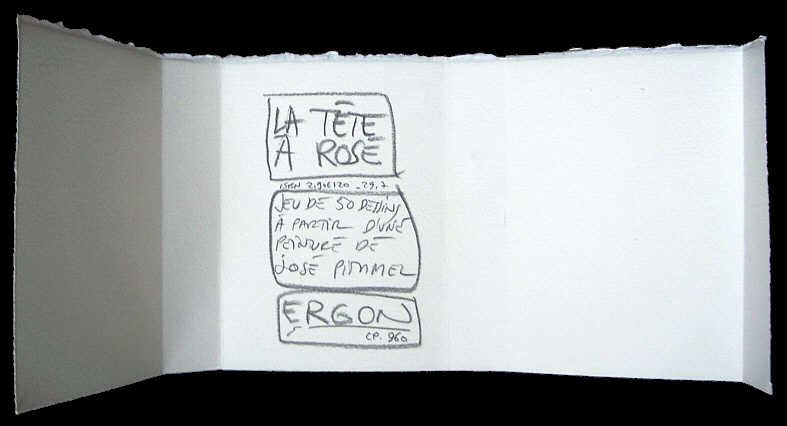 LA TÊTE
À ROSE
ISBN 2.906120_29.7
JEU DE 50 DESSINS
À PARTIR D'UNE
PEINTURE DE
JOSÉ PITMMEL
ERGON
CP. 960